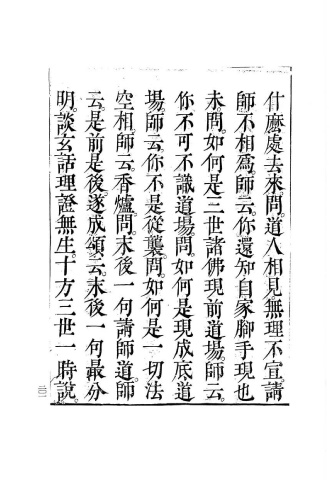 什麽處去來問道人相見無理不宣請
師不相爲師云你還知自家腳手現也
未問如何是三世諸佛現前道場師云
你不可不識道場問如何是現成底道
場師云你不是從襲問如何是一切法
空相師云香爐問末後一句請師道師
云是前是後遂成頌云末後一句最分
明談玄話理證無生十方三世一時說